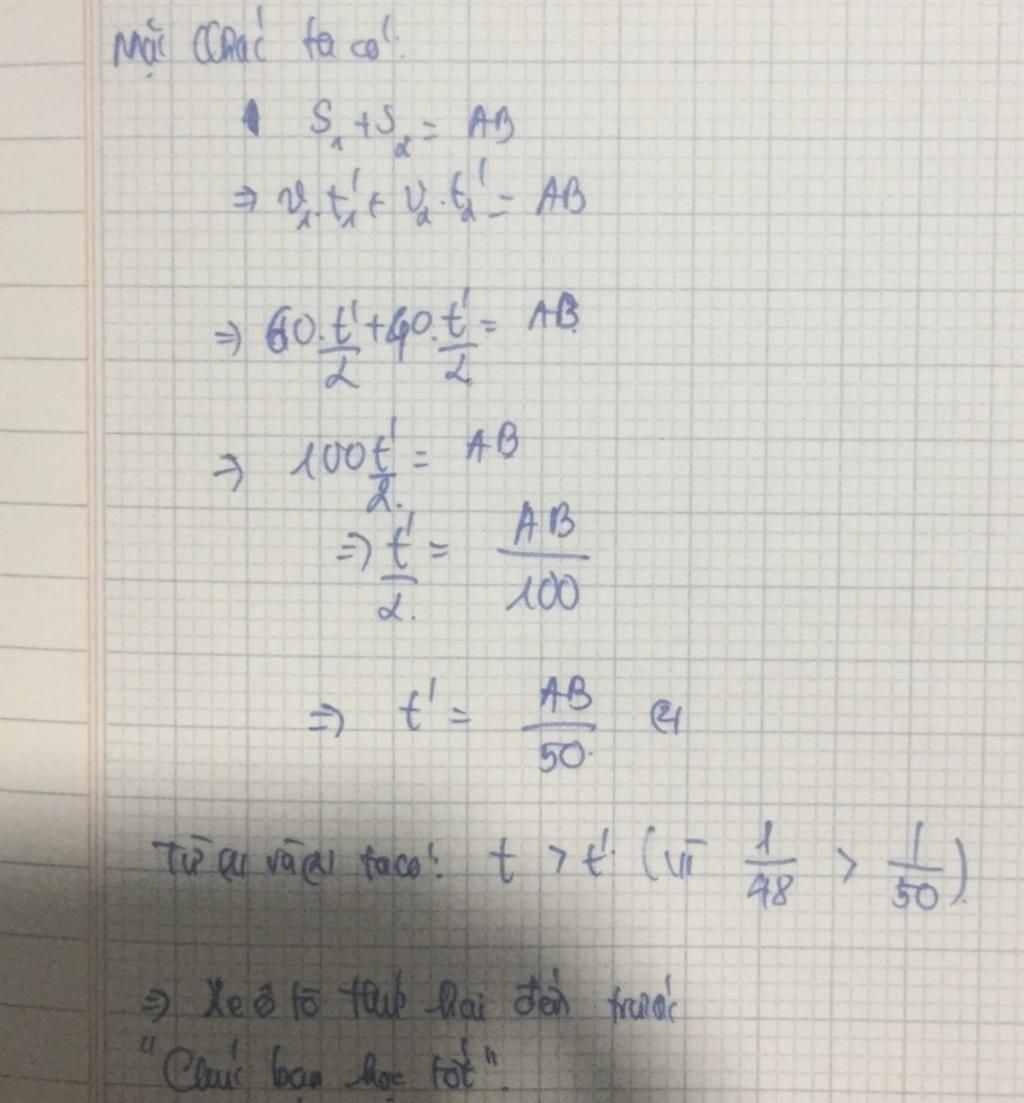 Mặt khác ta có:
S₁ + S₂ = AB
⇒ v₁.t₁' + v₂.t₂' = AB
⇒ 60.t'/2 + 40.t'/2 = AB
⇒ 100t'/2. = AB
⇒ t'/2. = AB/100
⇒ t' = AB/50. (2)
Từ (1) và (2) ta có: t > t' (vì 1/48 > 1/50).
⇒ Xe ô tô thứ hai đến trước
"Chúc bạn học tốt".